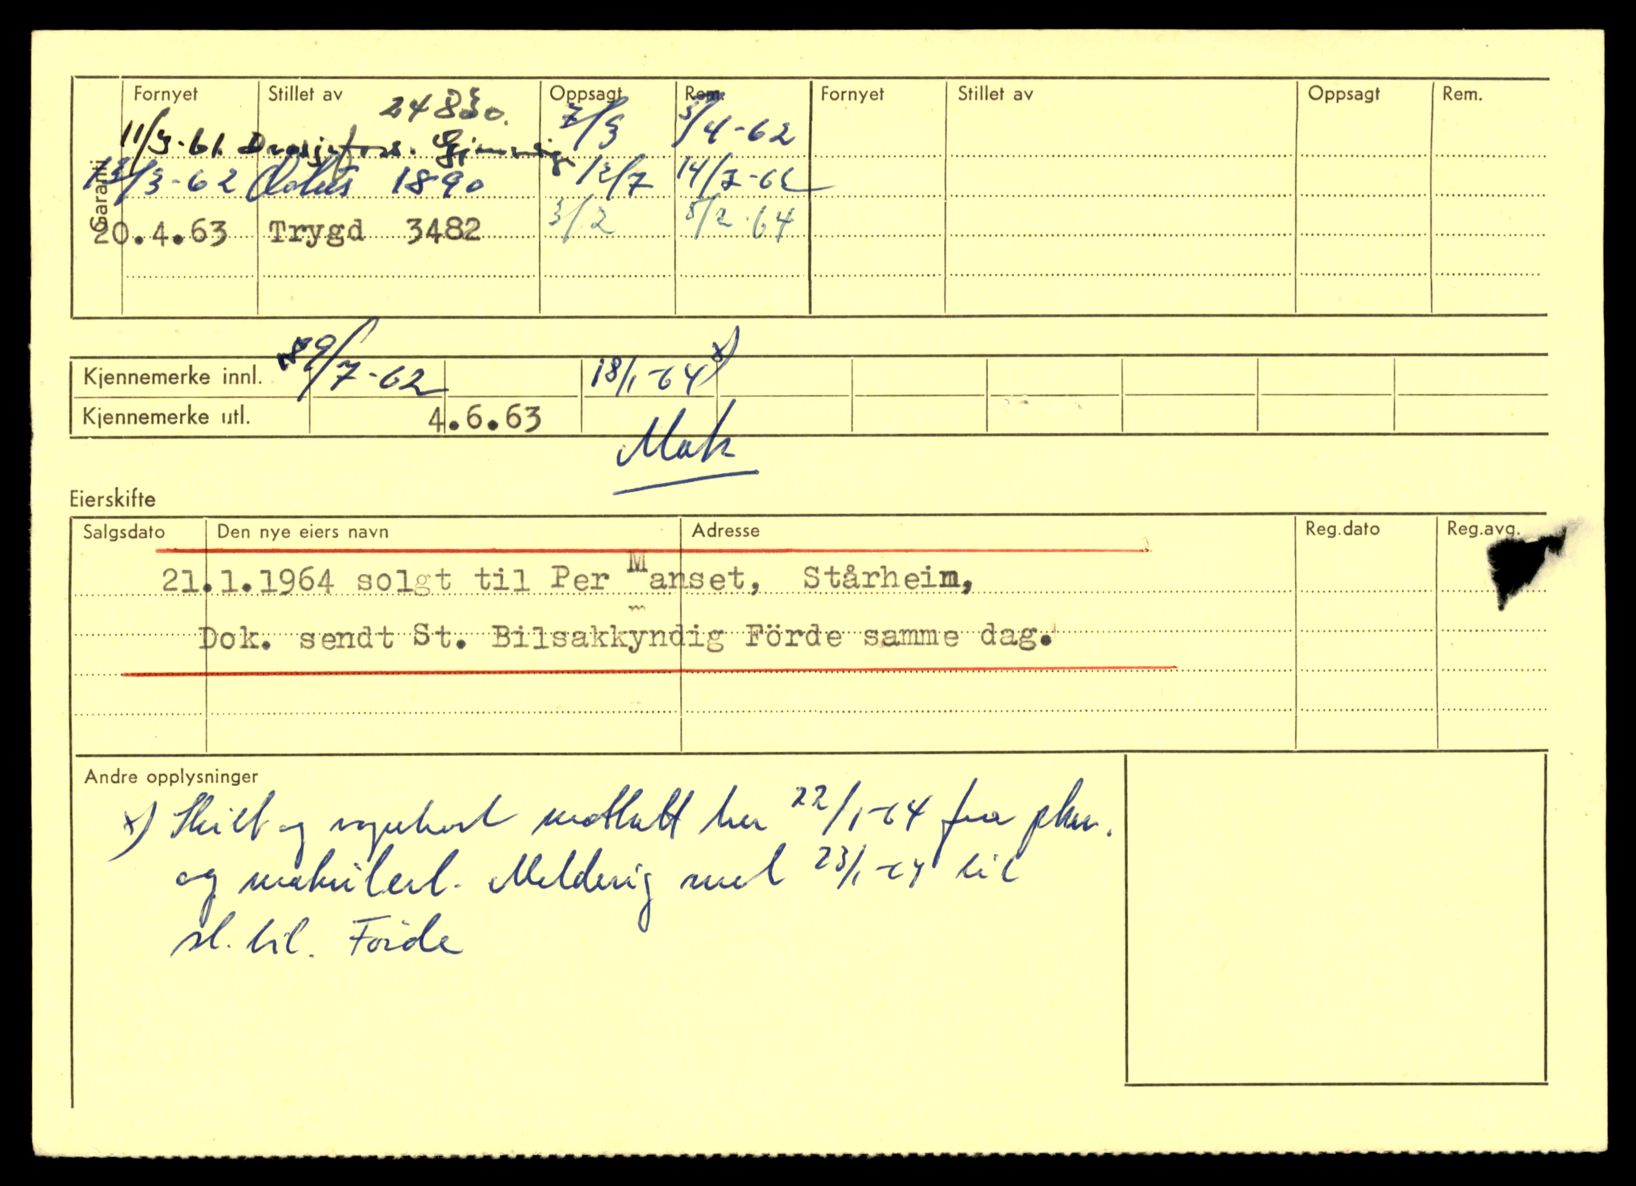 Garanti
Fornyet Stillet av Oppsagt Rem. Fornyet Stillet av Oppsagt Rem.
24830.
11/3-61. Drosjefors. Gjensidige 7/3 5/4-62
13/3-62 1890 12/7 14/7-62
20.4.63 Trygd 3482 3/2 5/2-64
Kjennemerke innl. 9/7-62 18/1-64 x)
Kjennemerke utl. 4.6.63
Mak
Eierskifte
Salgsdato Den nye eiers navn Adresse Reg.dato Reg.avg.
21.1.1964 solgt til Per Manset, Stårheim,
Dok. sendt St. Bilsakkyndig Förde samme dag.
Andre opplysninger
x) Skilt og vognkort mottatt her 22/1-64 fra phm.
og makulert. Melding sendt 23/1-64 til
st. bil. Förde